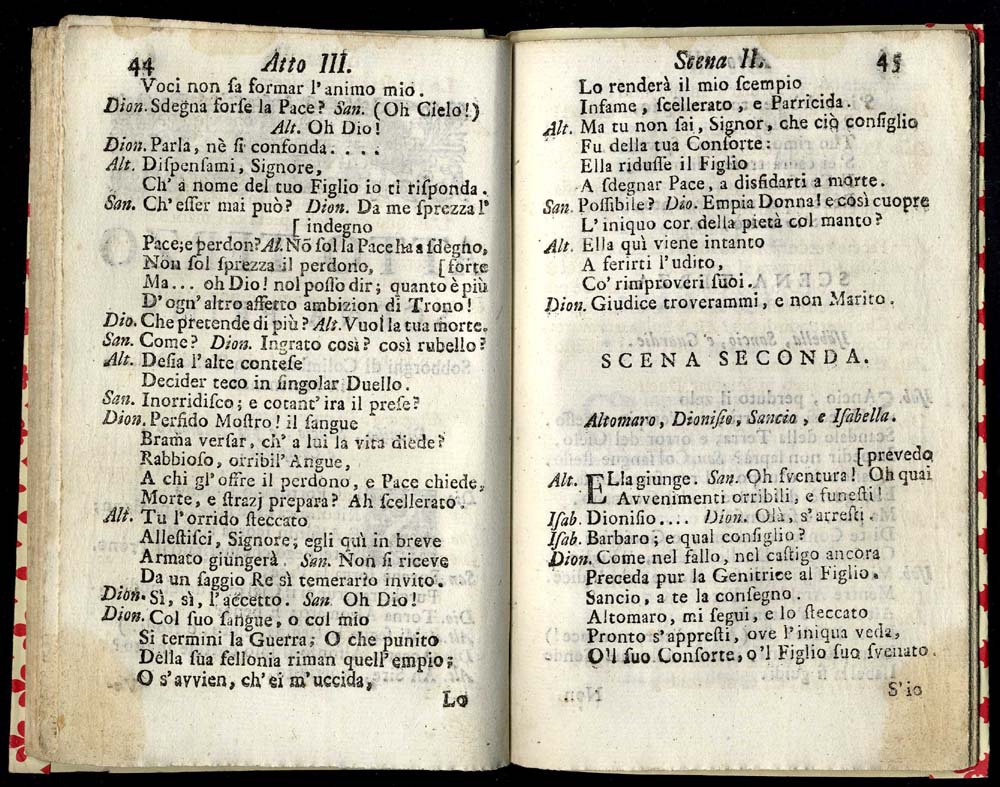 44 Atto III.
Voci non ſa formar l'animo mio.
Dion. Sdegna forſe la Pace? San. (Oh Cielo!)
Alt. Oh Dio!
Dion. Parla, nè ſi confonda. . . .
Alt. Diſpenſami, Signore,
Ch' a nome del tuo Figlio io ti riſponda.
San. Ch' eſſer mai può? Dion. Da me ſprezza l'
[ indegno
Pace; e perdon? Al. Nō ſol la Pace ha a ſdegno,
Non ſol ſprezza il perdono, [forte
Ma... oh Dio! nol poſſo dir; quanto è più
D' ogn' altro affetto ambizion di Trono!
Dio. Che pretende di più? Alt. Vuol la tua morte.
San. Come? Dion. Ingrato così? così rubello?
Alt. Deſia l'alte conteſe
Decider teco in ſingolar Duello.
San. Inorridiſco; e cotant' ira il preſe?
Dion. Perfido Moſtro! il ſangue
Brama verſar, ch' a lui la vita diede?
Rabbioſo, orribil' Angue,
A chi gl' offre il perdono, e Pace chiede,
Morte, e ſtrazj prepara? Ah ſcellerato.
Alt. Tu l'orrido ſteccato
Alleſtiſci, Signore; egli quì in breve
Armato giungerà. San. Non ſi riceve
Da un ſaggio Re sì temerario invito.
Dion. Sì, sì, l'accetto. San. Oh Dio!
Dion. Col ſuo ſangue, o col mio
Si termini la Guerra; O che punito
Della ſua fellonia riman quell' empio;
O s'avvien, ch' ei m'uccida,
Lo
Scena II. 45
Lo renderà il mio ſcempio
Infame, ſcellerato, e Parricida.
Alt. Ma tu non ſai, Signor, che ciò conſiglio
Fu della tua Conſorte:
Ella riduſſe il Figlio
A ſdegnar Pace, a disfidarti a morte.
San. Poſſibile? Dio. Empia Donna! e così cuopre
L' iniquo cor della pietà col manto?
Alt. Ella quì viene intanto
A ferirti l'udito,
Co' rimproveri ſuoi.
Dion. Giudice troverammi, e non Marito.
SCENA SECONDA.
Altomaro, Dioniſio, Sancio, e Iſabella.
[prevedo
Alt. ELla giunge. San. Oh ſventura! Oh quai
Avvenimenti orribili, e funeſti!
Iſab. Dioniſio.... Dion. Olà, s'arreſti.
Iſab. Barbaro; e qual conſiglio?
Dion. Come nel fallo, nel caſtigo ancora
Preceda pur la Genitrice al Figlio.
Sancio, a te la conſegno.
Altomaro, mi ſegui, e lo ſteccato
Pronto s'appreſti, ove l'iniqua veda,
O'l ſuo Conſorte, o'l Figlio ſuo ſvenato.
S'io